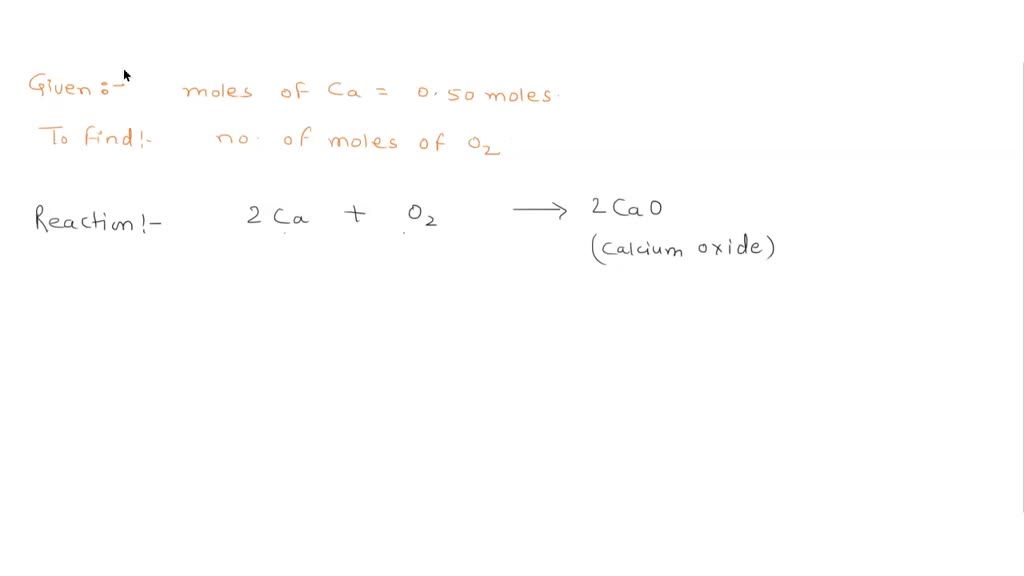 Given :- moles of Ca = 0.50 moles.
To find :- no. of moles of O₂
Reaction :- 2 Ca + O₂ → 2 CaO
(Calcium oxide)